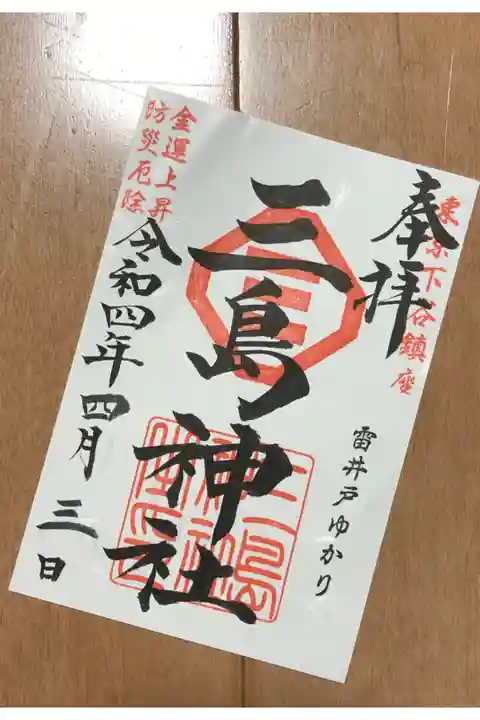 東京下谷鎮座
奉拝
雷井戸ゆかり
三島神社
金運上昇
防災厄除
令和四年四月三日